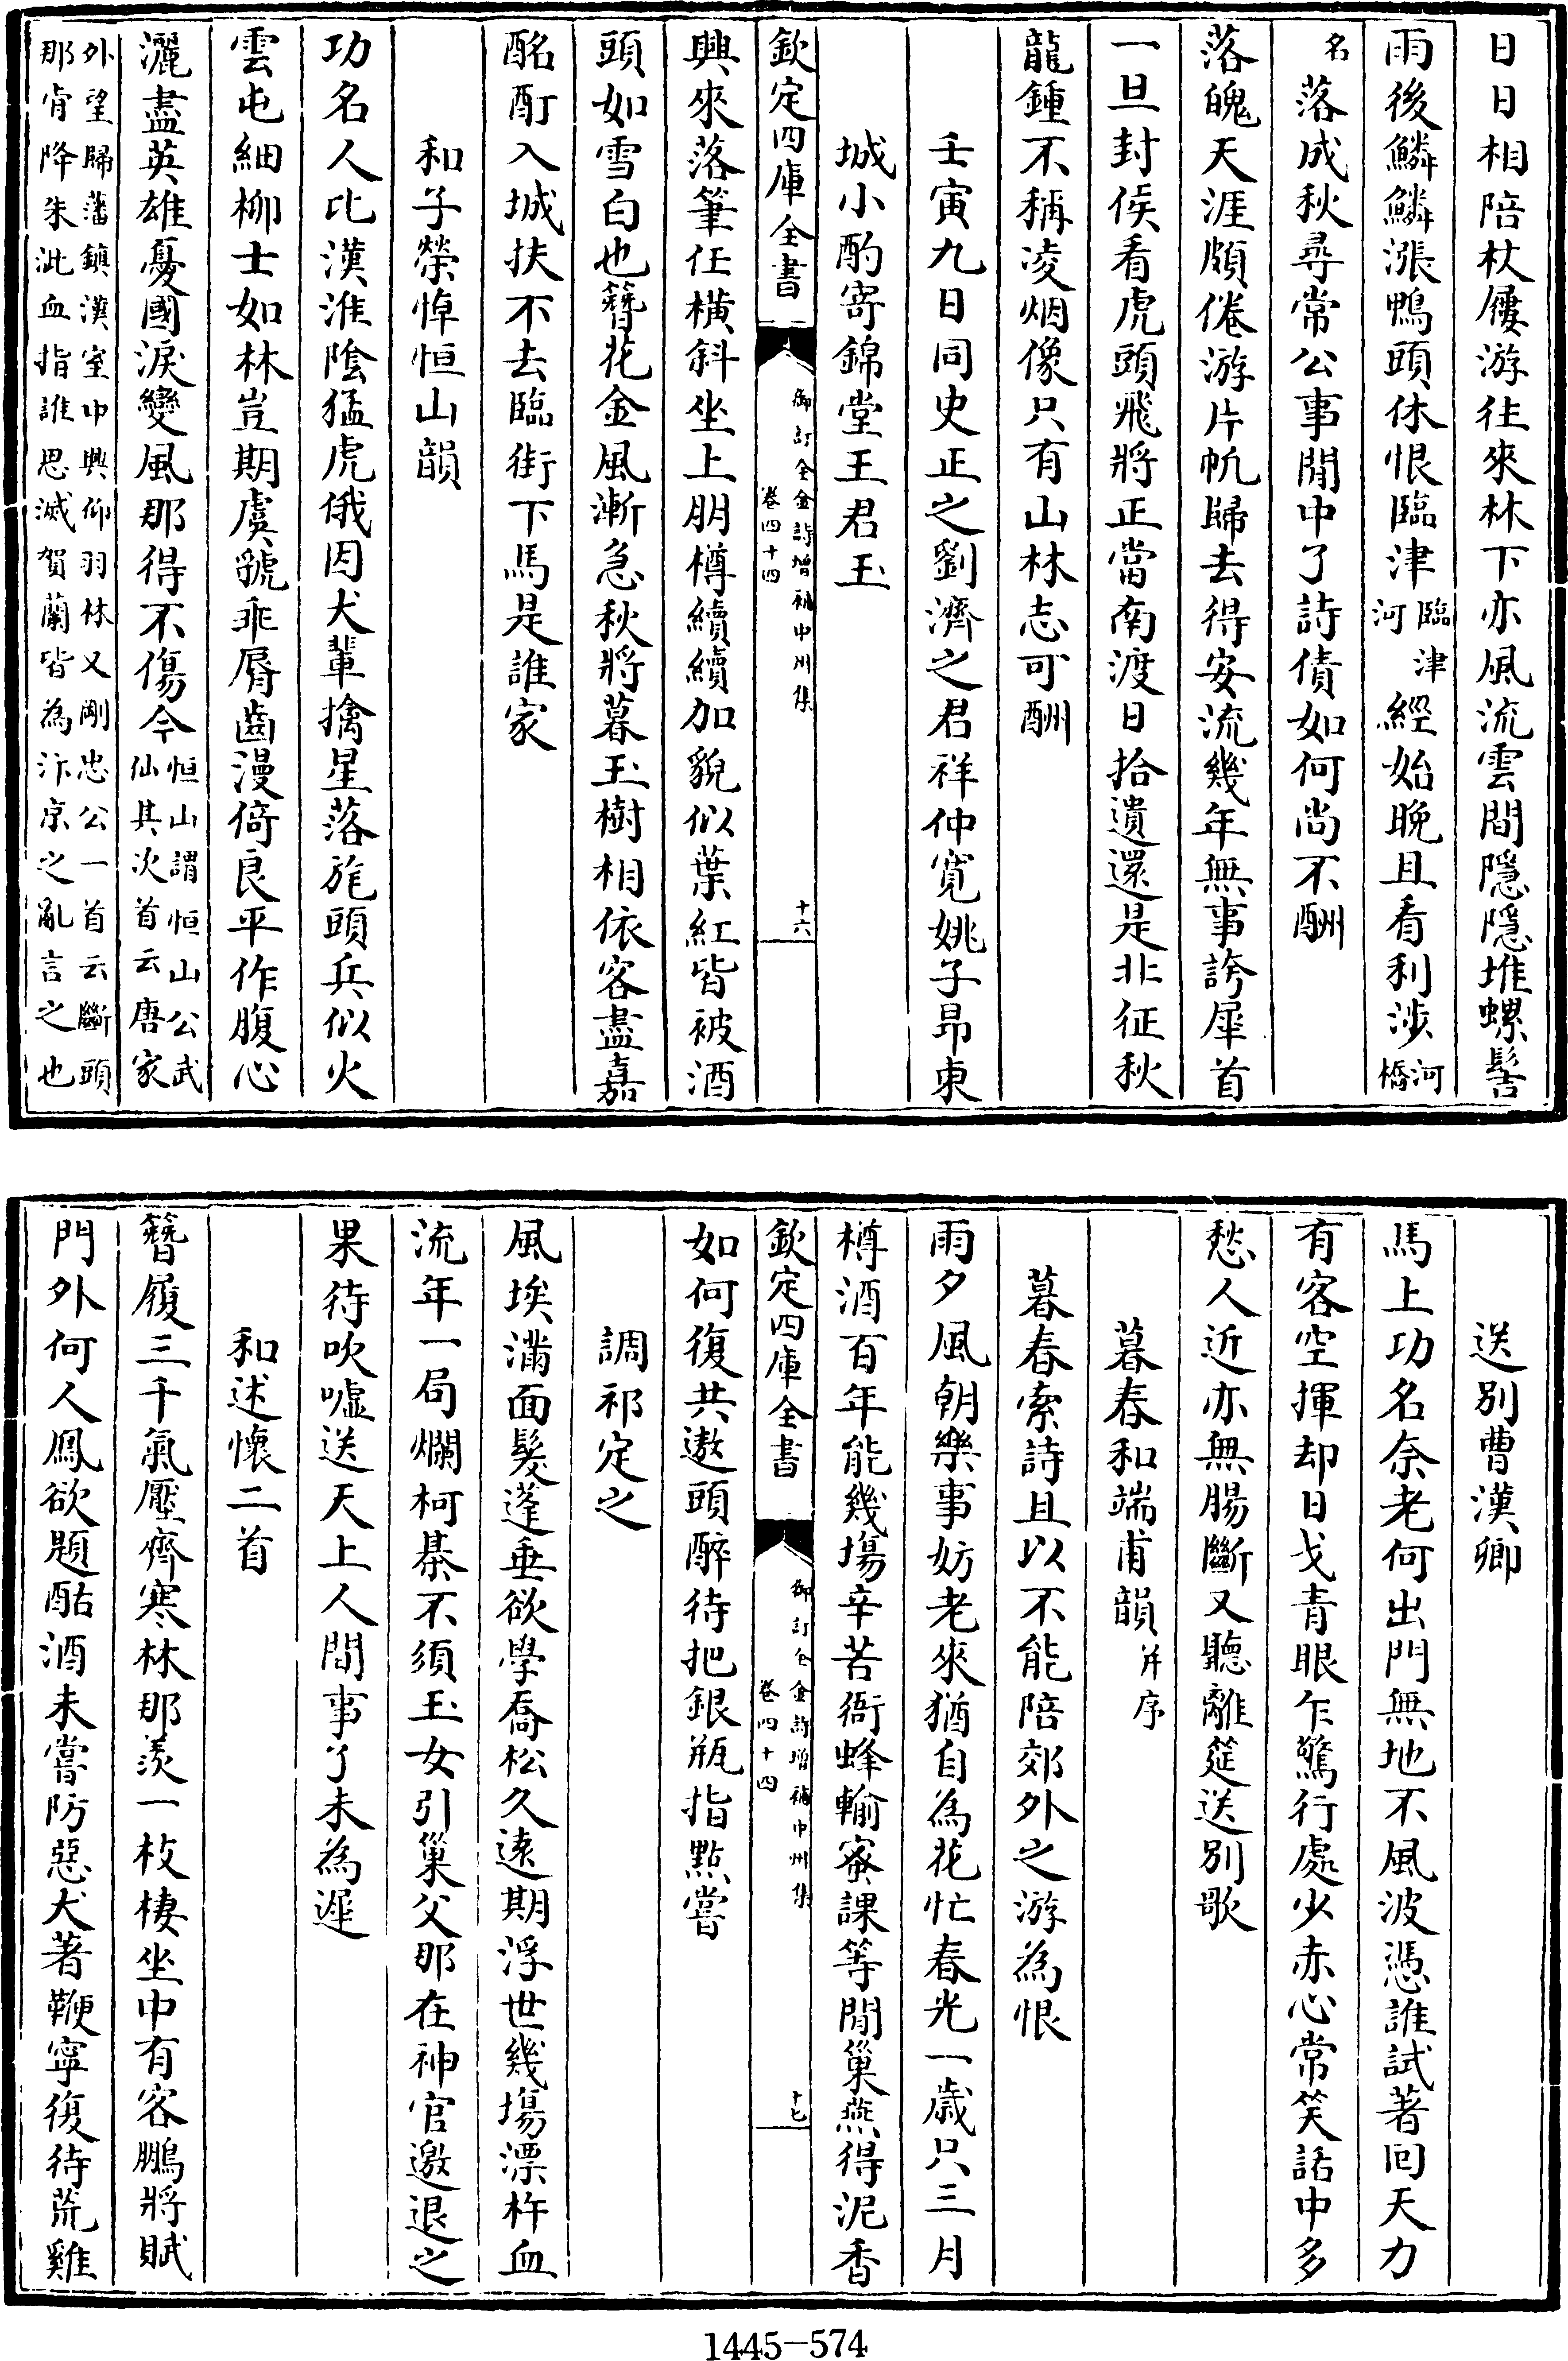 日日相陪杖屨游往來林下亦風流雲間隱隱堆螺髻
雨後鱗鱗漲鴨頭休恨臨津臨津河經始晚且看利涉河橋
名落成秋尋常公事閒中了詩債如何尚不酬
落魄天涯頗倦游片帆歸去得安流幾年無事誇犀首
一旦封侯看虎頭飛將正當南渡日拾遺還是北征秋
龍鍾不稱凌烟像只有山林志可酬
壬寅九日同史正之劉濟之君祥仲寛姚子昂東
城小酌寄錦堂王君玉
欽定四庫全書
御訂全金詩增補中州集
卷四十四
十六
興來落筆任橫斜坐上朋樽續續加貌似葉紅皆被酒
頭如雪白也簪花金風漸急秋將暮玉樹相依客盡嘉
酩酊入城扶不去臨街下馬是誰家
和子榮悼恒山韻
功名人比漢淮陰猛虎俄因犬輩擒星落旄頭兵似火
雲屯細柳士如林豈期虞虢乖脣齒漫倚良平作腹心
灑盡英雄憂國淚變風那得不傷今恒山謂恒山公武仙其次首云唐家
外望歸藩鎮漢室中興仰羽林又剛忠公一首云斷頭
那肯降朱泚血指誰思滅賀蘭皆為汴京之亂言之也
送別曹漢卿
馬上功名奈老何出門無地不風波憑誰試著回天力
有客空揮却日戈青眼乍驚行處少赤心常笑話中多
愁人近亦無腸斷又聽離筵送別歌
暮春和端甫韻并序
暮春索詩且以不能陪郊外之游為恨
雨夕風朝樂事妨老來猶自為花忙春光一歲只三月
樽酒百年能幾場辛苦衙蜂輸蜜課等閒巢燕得泥香
欽定四庫全書
御訂全金詩增補中州集
卷四十四
十七
如何復共遨頭醉待把銀瓶指點嘗
調祁定之
風埃滿面髮蓬垂欲學喬松久遠期浮世幾塲漂杵血
流年一局爛柯棊不須玉女引巢父那在神官邀退之
果待吹噓送天上人間事了未為遲
和述懷二首
簪履三千氣壓齊寒林那羨一枝棲坐中有客鵬將賦
門外何人鳳欲題酤酒未嘗防惡犬著鞭寧復待荒雞
1445-574